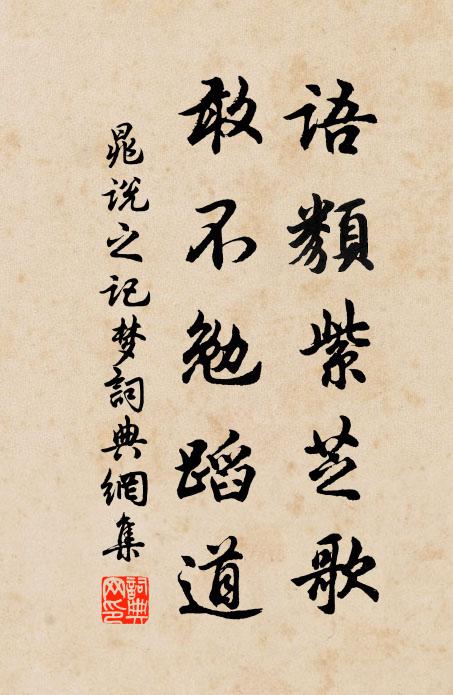 語類紫芝歌
敢不勉蹈道
晁说之记梦詞典網集
詞典网印